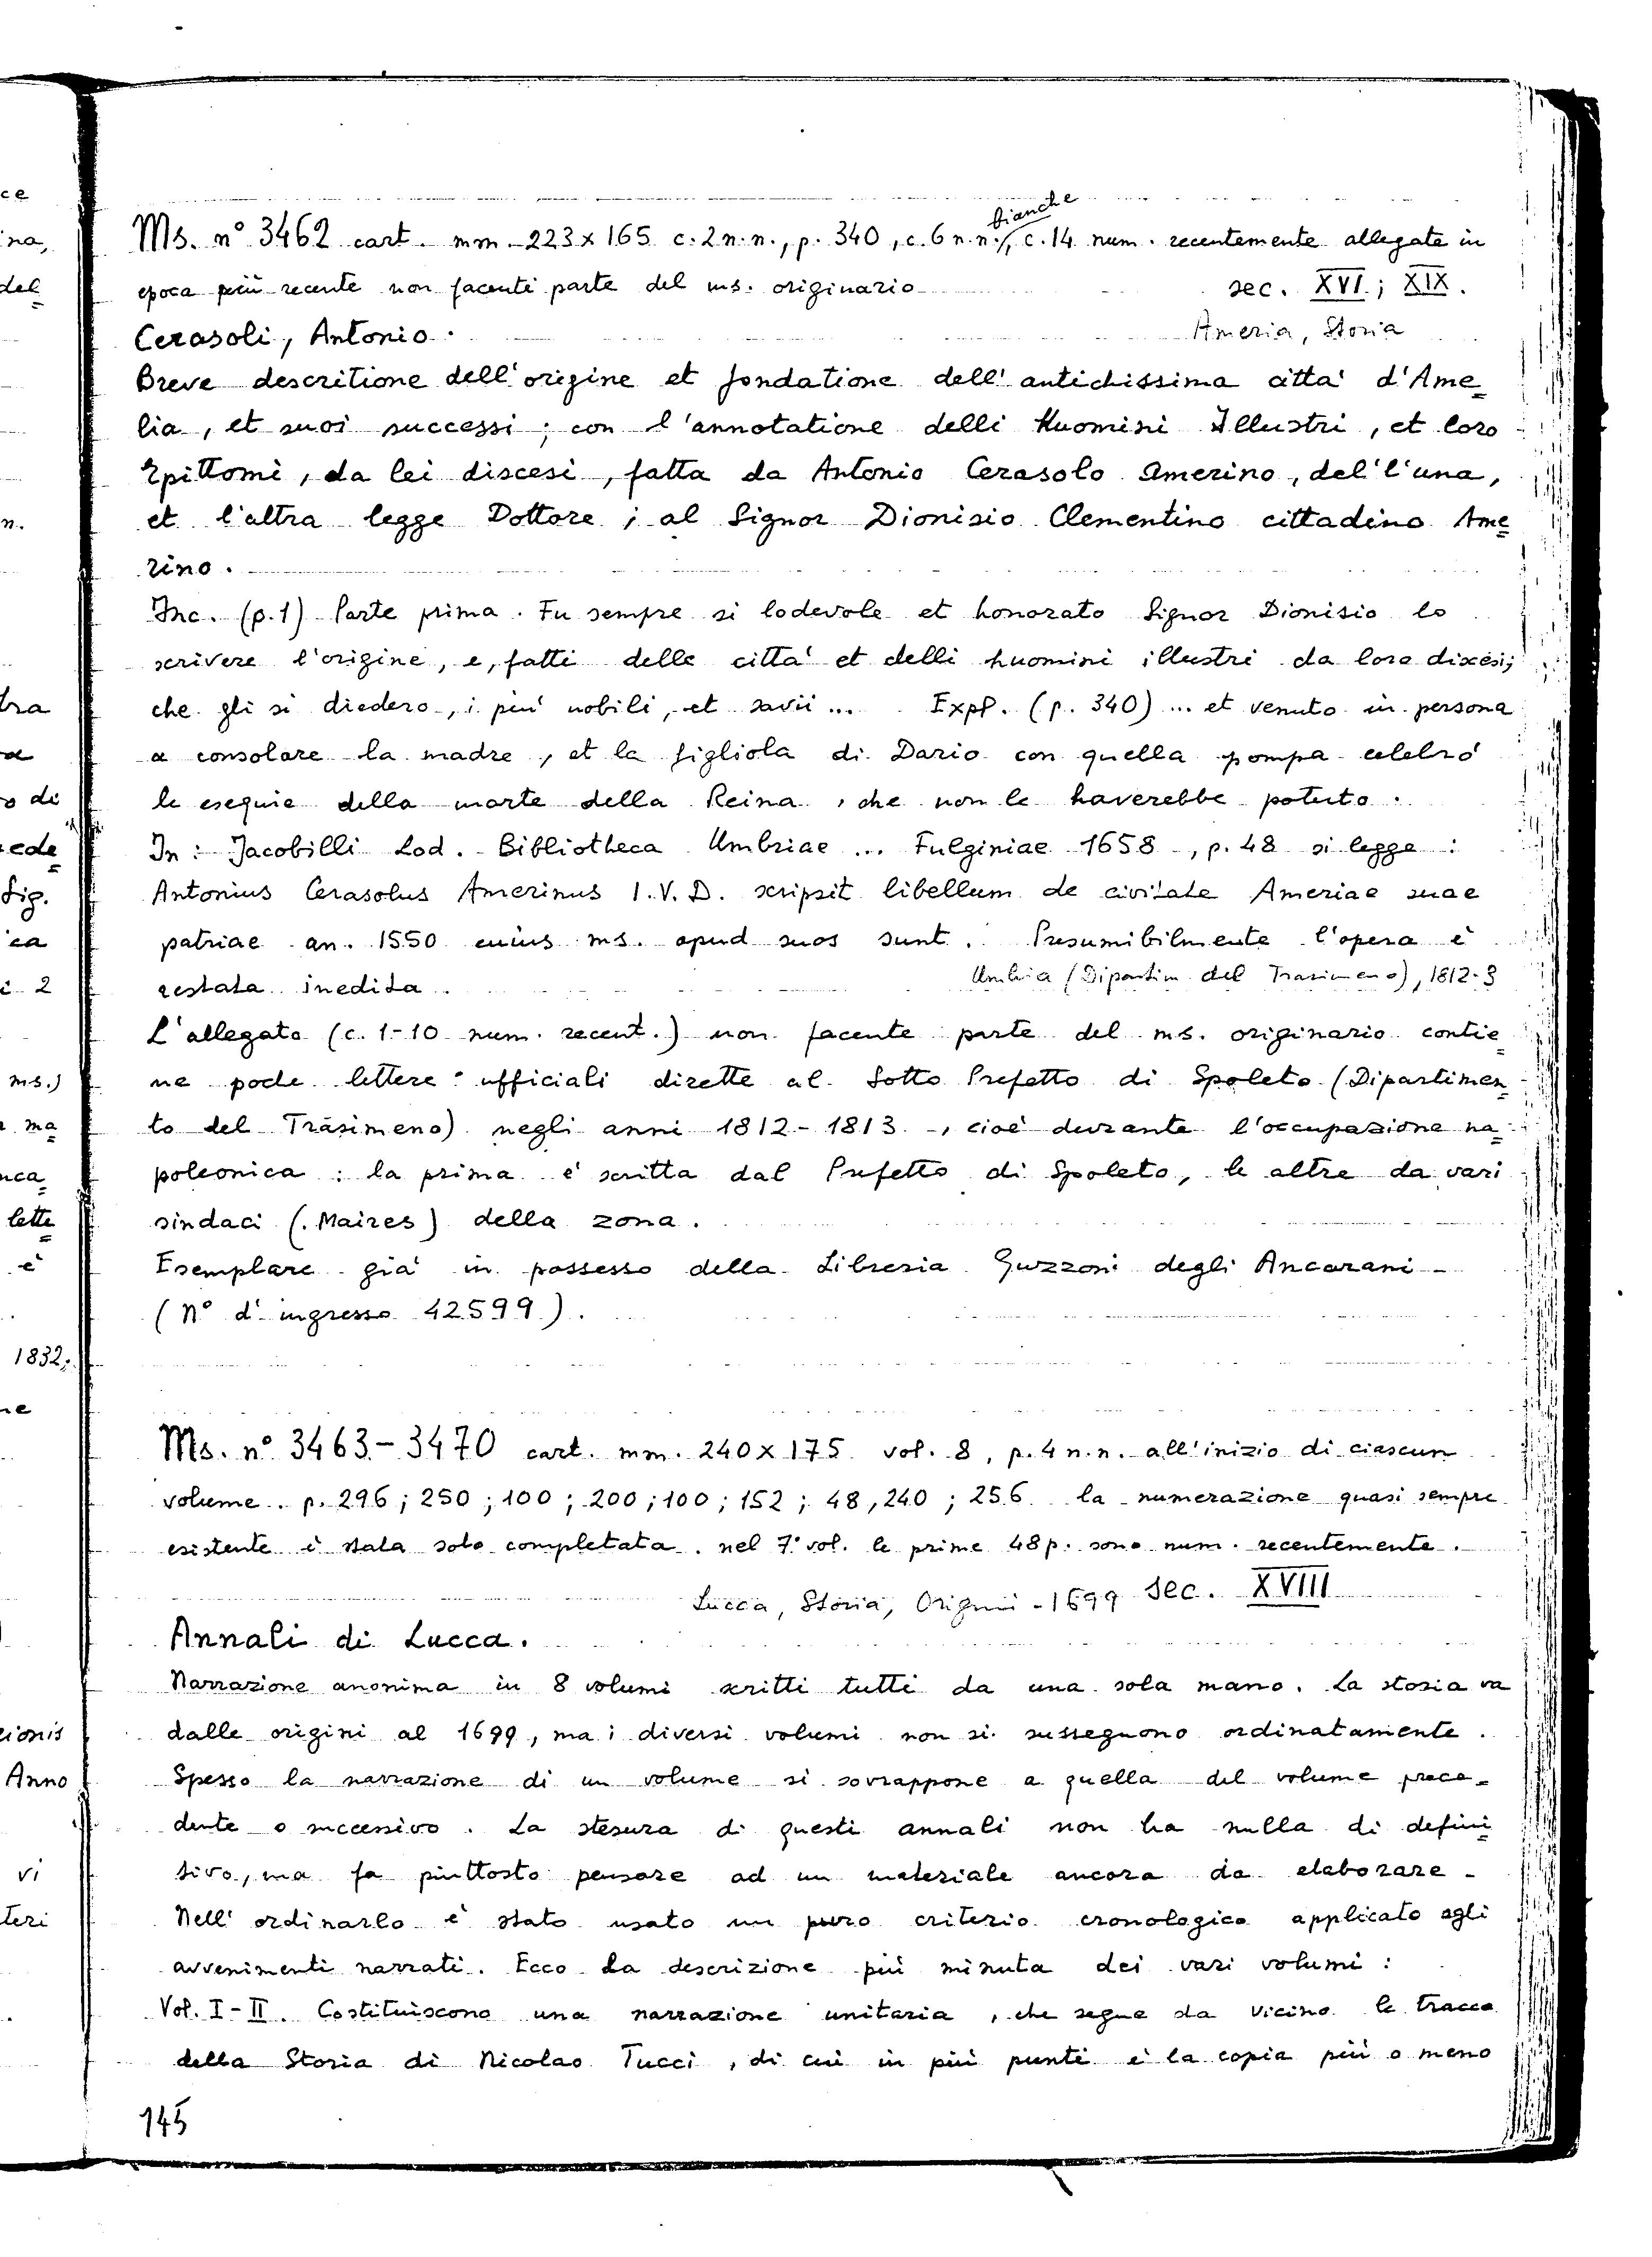 Ms. n° 3462 cart. mm. 223 x 165 c. 2 n.n., p. 340, c. 6 n.n. bianche, c. 14 num. recentemente allegate in
epoca più recente non facenti parte del ms. originario
sec. XVI; XIX.
Cerasoli, Antonio.
Ameria, Storia
Breve descritione dell'origine et fondatione dell'antichissima città d'Ame=
lia, et suoi successi; con l'annotatione delli Huomini Illustri, et loro
Epittomi, da lei discesi, fatta da Antonio Cerasolo Amerino, del'l'una,
et l'altra legge Dottore; al Signor Dionisio Clementino cittadino Ame=
rino.
Inc. (p. 1) Parte prima. Fu sempre si lodevole et honorato Signor Dionisio lo
scrivere l'origine, e, fatti delle città et delli huomini illustri da loro discesi;
che gli si diedero, i più nobili, et savii ... Expl. (p. 340) ... et venuto in persona
a consolare la madre, et la figliola di Dario con quella pompa celebrò
le esequie della morte della Reina, che non le haverebbe potuto.
In: Jacobilli Lod. Bibliotheca Umbriae ... Fulginiae 1658, p. 48 si legge:
Antonius Cerasolus Amerinus I.V.D. scripsit libellum de civitate Ameriae suae
patriae an. 1550 cuius ms. apud suos sunt. Presumibilmente l'opera è
restata inedita.
Umbria (Dipartim. del Trasimeno), 1812-3
L'allegato (c. 1-10 num. recent.) non facente parte del ms. originario contie=
ne poche lettere ufficiali dirette al Sotto Prefetto di Spoleto (Dipartimen=
to del Trasimeno) negli anni 1812-1813, cioè durante l'occupazione na=
poleonica: la prima è scritta dal Prefetto di Spoleto, le altre da vari
sindaci (Maires) della zona.
Esemplare già in possesso della Libreria Guzzoni degli Ancarani -
(N° d'ingresso 42599).
Ms. n° 3463-3470 cart. mm. 240 x 175 vol. 8, p. 4 n.n. all'inizio di ciascun
volume. p. 296; 250; 100; 200; 100; 152; 48, 240; 256 la numerazione quasi sempre
esistente è stata solo completata. nel 7° vol. le prime 48 p. sono num. recentemente.
Lucca, Storia, Origini - 1699 Sec. XVIII
Annali di Lucca.
Narrazione anonima in 8 volumi scritti tutti da una sola mano. La storia va
dalle origini al 1699, ma i diversi volumi non si susseguono ordinatamente.
Spesso la narrazione di un volume si sovrappone a quella del volume prece=
dente o successivo. La stesura di questi annali non ha nulla di defini=
tivo, ma fa piuttosto pensare ad un materiale ancora da elaborare.
Nell'ordinarlo è stato usato un puro criterio cronologico applicato agli
avvenimenti narrati. Ecco la descrizione più minuta dei vari volumi:
Vol. I-II. Costituiscono una narrazione unitaria, che segue da vicino la traccia
della Storia di Nicolao Tucci, di cui in più punti è la copia più o meno
145